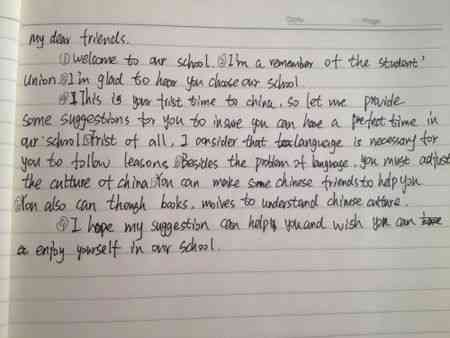 Date Page
My dear friends.
①Welcome to our school.②I'm a remember of the student'
Union.③I'm glad to hear you choose our school.
④This is your frist time to china, so let me provide
some suggestions for you to insure you can have a prefect time in
our school⑤frist of all, I consider that language is necessary for
you to follow leasons.⑥Besides the problem of language, you must adjust
the culture of china⑦You can make some chinese friends to help you
⑧You also can though books, moives to understand chinese culture.
⑨I hope my suggestion can help you and wish you can
enjoy yourself in our school.